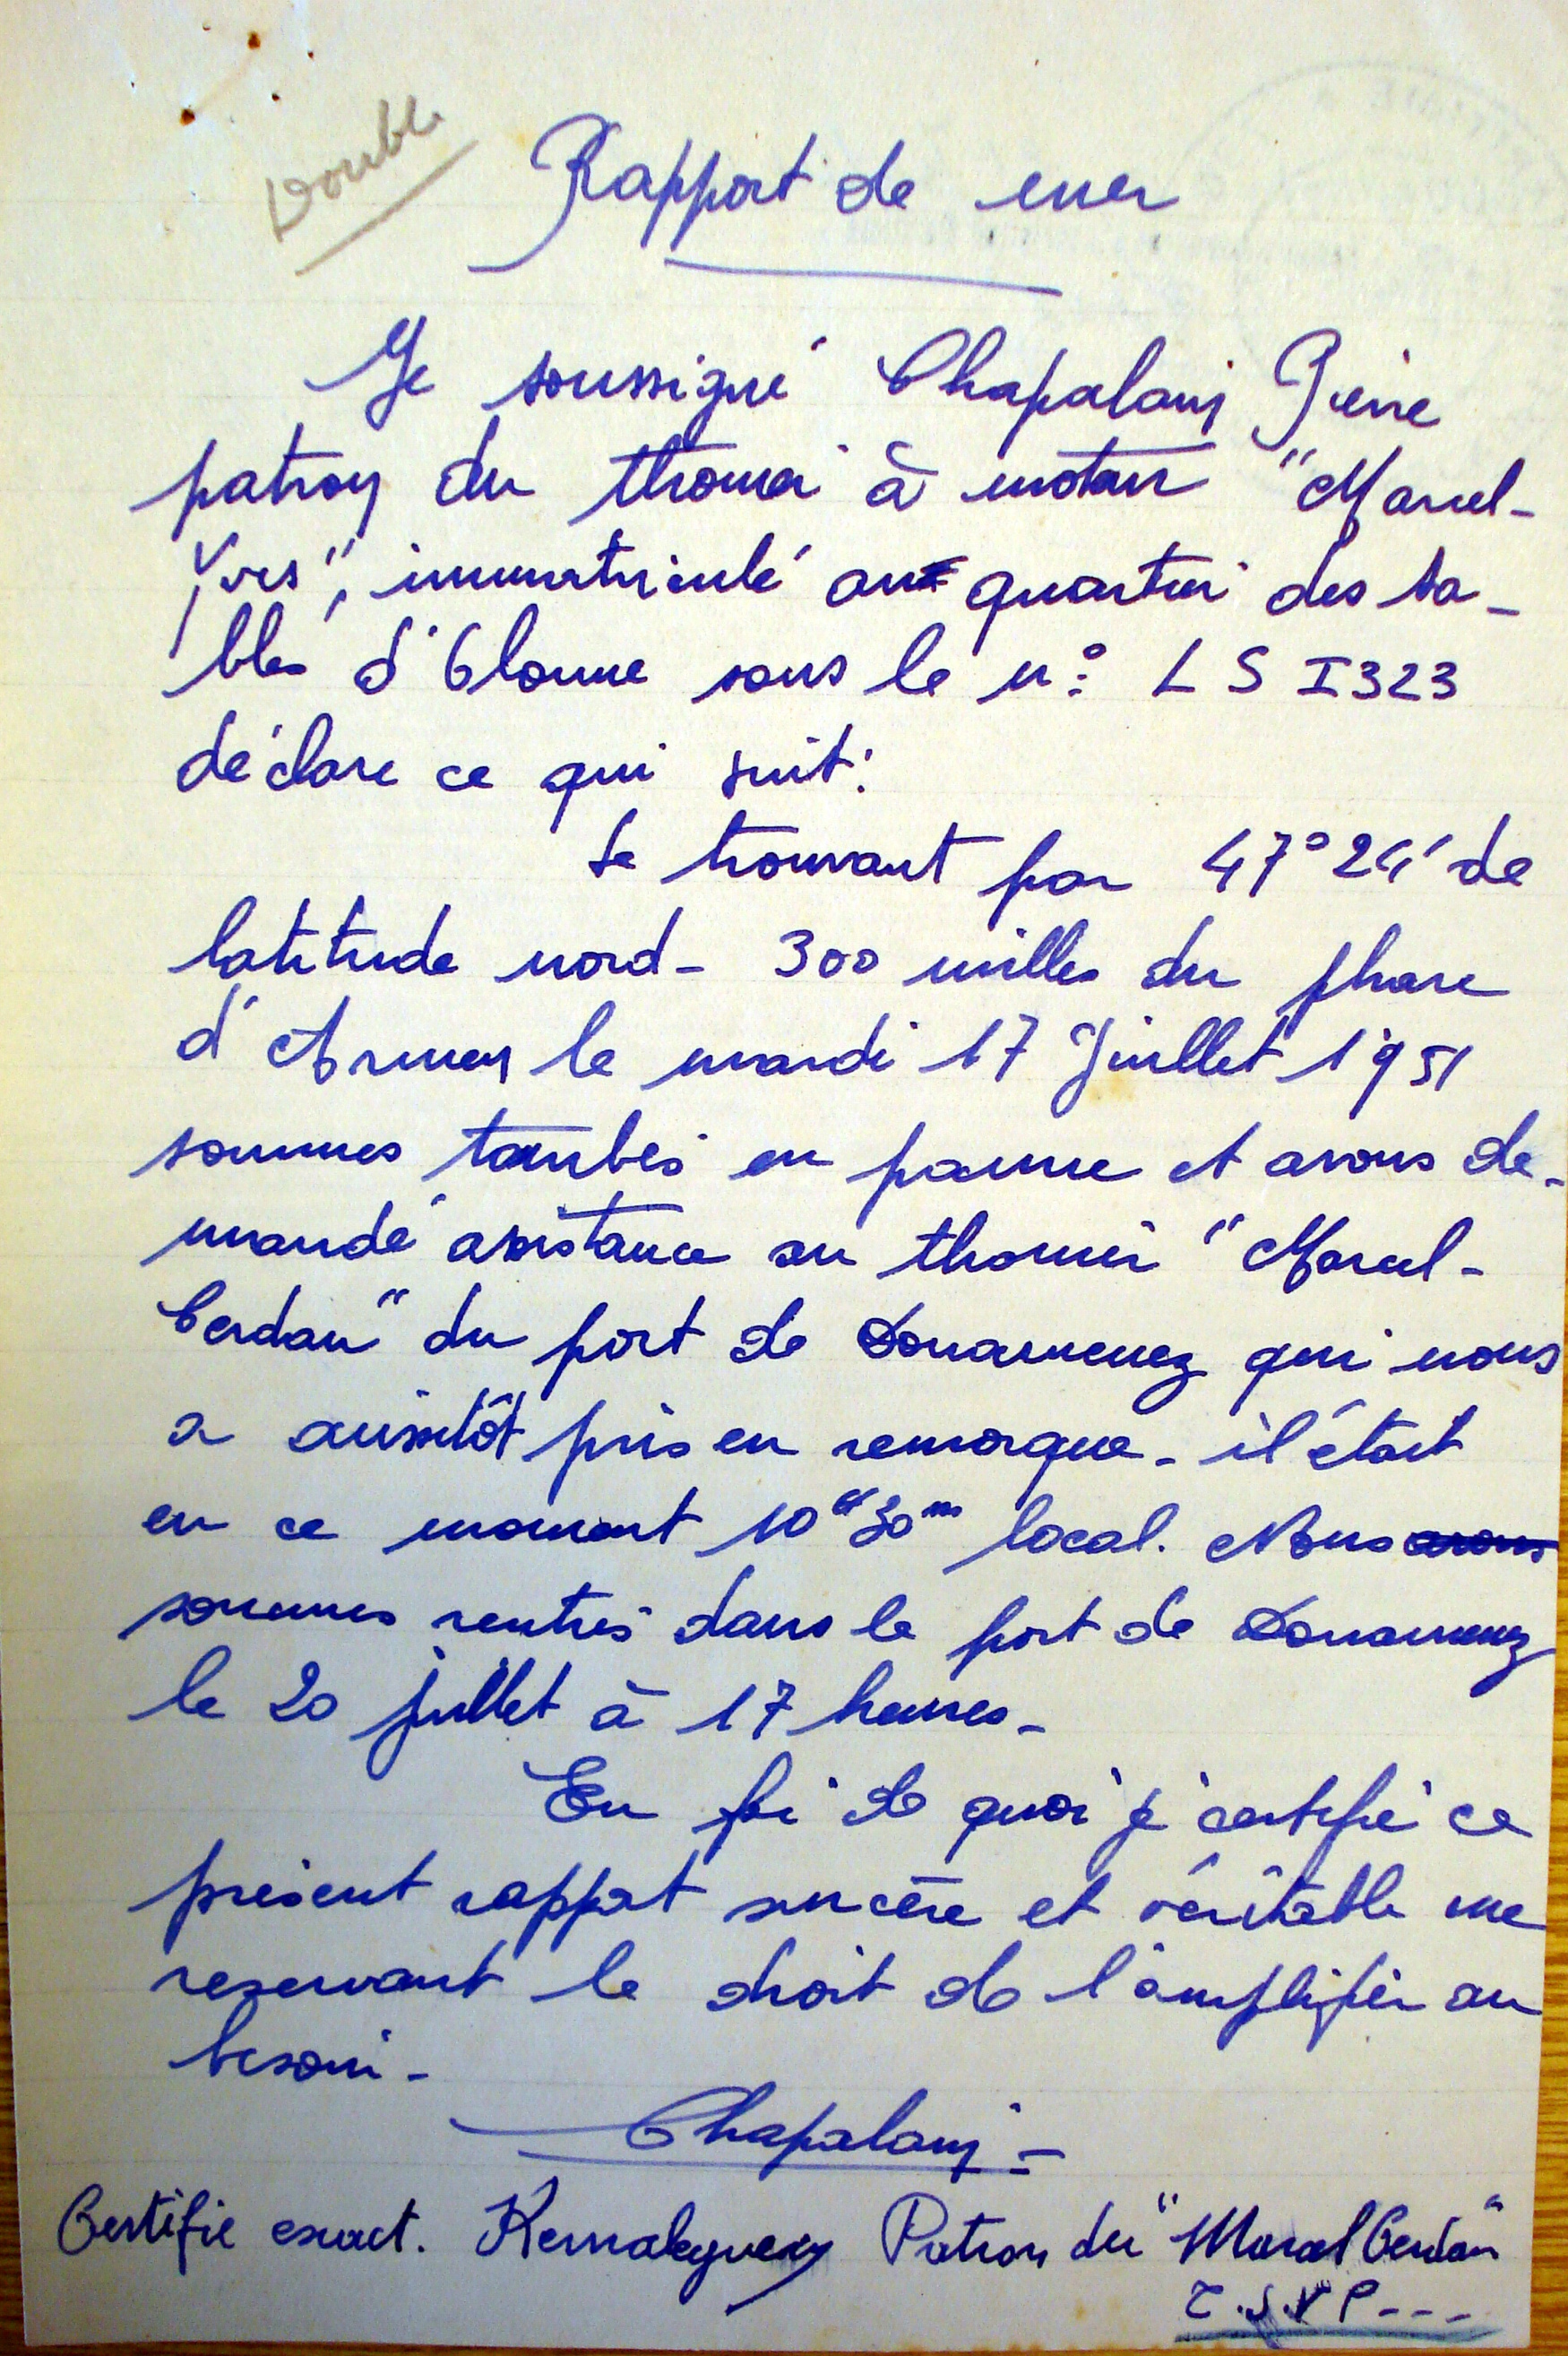 Double
Rapport de mer
Je soussigné Chapalain Pierre
patron du thonier à moteur "Marcel-
Yves", immatriculé au quartier des Sa-
bles d'Olonne sous le n° LS I323
déclare ce qui suit:
Se trouvant par 47°24' de
latitude nord - 300 milles du phare
d'Armen le mardi 17 Juillet 1951
sommes tombés en panne et avons de-
mandé assistance au thonier "Marcel-
Cerdan" du port de Douarnenez qui nous
a aussitôt pris en remorque - il était
en ce moment 10H30m local. Nous avons
sommes rentrés dans le port de Douarnenez
le 20 juillet à 17 heures -
En foi de quoi je certifie ce
présent rapport sincère et véritable me
reservant le droit de l'amplifier au
besoin -
Chapalain -
Certifie exact. Kernaleguen Patron du "Marcel Cerdan"
T.S.V P ---